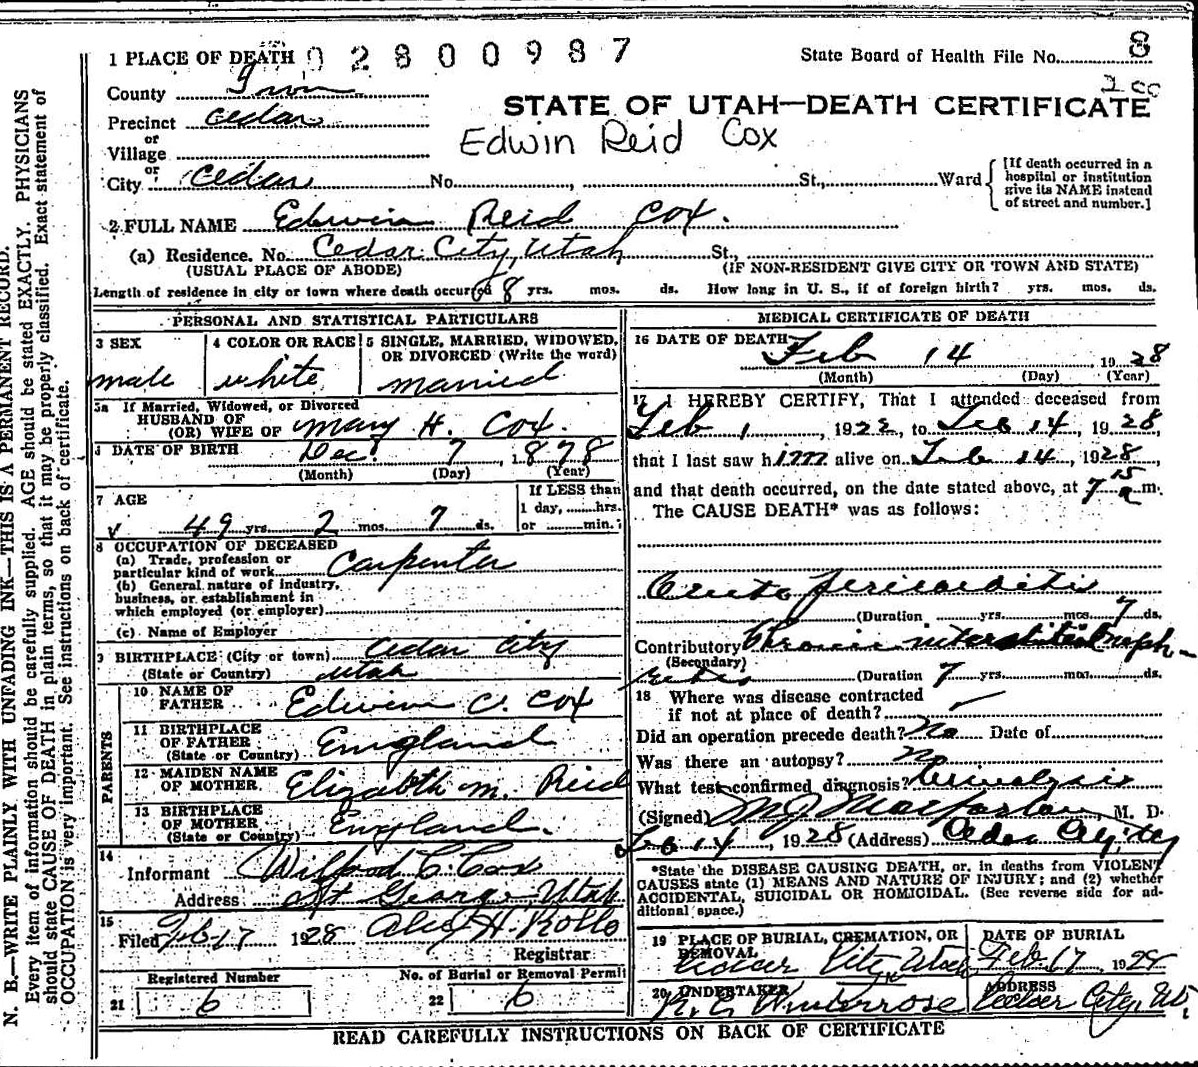 1 PLACE OF DEATH 02800987
State Board of Health File No. 8
County Iron
200
STATE OF UTAH—DEATH CERTIFICATE
Precinct Cedar
Edwin Reid Cox
or
Village
or
City Cedar No. , St., Ward
[If death occurred in a
hospital or institution
give its NAME instead
of street and number.]
2 FULL NAME Edwin Reid Cox.
(a) Residence. No. Cedar City, Utah St.,
(USUAL PLACE OF ABODE) (IF NON-RESIDENT GIVE CITY OR TOWN AND STATE)
Length of residence in city or town where death occurred 8 yrs. mos. ds. How long in U. S., if of foreign birth? yrs. mos. ds.
PERSONAL AND STATISTICAL PARTICULARS
3 SEX
male
4 COLOR OR RACE
white
5 SINGLE, MARRIED, WIDOWED,
OR DIVORCED (Write the word)
married
5a If Married, Widowed, or Divorced
HUSBAND OF
(OR) WIFE OF Mary H. Cox.
DATE OF BIRTH Dec. 7 1878
(Month) (Day) (Year)
7 AGE
49 yrs. 2 mos. 7 ds.
If LESS than
1 day, hrs.
or min.
8 OCCUPATION OF DECEASED
(a) Trade, profession or
particular kind of work Carpenter
(b) General nature of industry,
business, or establishment in
which employed (or employer)
(c) Name of Employer
9 BIRTHPLACE (City or town) Cedar City
(State or Country) Utah
PARENTS
10 NAME OF
FATHER Edwin C. Cox
11 BIRTHPLACE
OF FATHER England
(State or Country)
12 MAIDEN NAME
OF MOTHER Elizabth M. Reid
13 BIRTHPLACE
OF MOTHER England.
(State or Country)
14
Informant Wilford C. Cox
Address St George, Utah
15
Filed Feb 17 1928 Alex H. Rollo
Registrar
Registered Number No. of Burial or Removal Permit
21 6 22 6
MEDICAL CERTIFICATE OF DEATH
16 DATE OF DEATH
Feb 14 1928
(Month) (Day) (Year)
17 I HEREBY CERTIFY, That I attended deceased from
Feb 1, 1922, to Feb 14, 1928,
that I last saw him alive on Feb 14, 1928
and that death occurred, on the date stated above, at 7 15 a m.
The CAUSE DEATH* was as follows:
Acute pericarditis
(Duration yrs. mos. 7 ds.
Contributory Chronic interstitial neph-
(Secondary)
ritis (Duration 7 yrs. mos. ds.
18 Where was disease contracted
if not at place of death?
Did an operation precede death? No Date of
Was there an autopsy? no
What test confirmed diagnosis? Urinalysis
(Signed) M J Macfarlane, M. D.
Feb 14, 1928 (Address) Cedar City, Utay
*State the DISEASE CAUSING DEATH, or, in deaths from VIOLENT
CAUSES state (1) MEANS AND NATURE OF INJURY; and (2) whether
ACCIDENTAL, SUICIDAL OR HOMICIDAL. (See reverse side for ad-
ditional space.)
19 PLACE OF BURIAL, CREMATION, OR
REMOVAL
Cedar City Utah
DATE OF BURIAL
Feb 17 1928
20 UNDERTAKER
Winterrose
ADDRESS
Cedar City, Ut.
READ CAREFULLY INSTRUCTIONS ON BACK OF CERTIFICATE
N. B.—WRITE PLAINLY WITH UNFADING INK—THIS IS A PERMANENT RECORD.
Every item of information should be carefully supplied. AGE should be stated EXACTLY. PHYSICIANS
should state CAUSE OF DEATH in plain terms, so that it may be properly classified. Exact statement of
OCCUPATION is very important. See instructions on back of certificate.